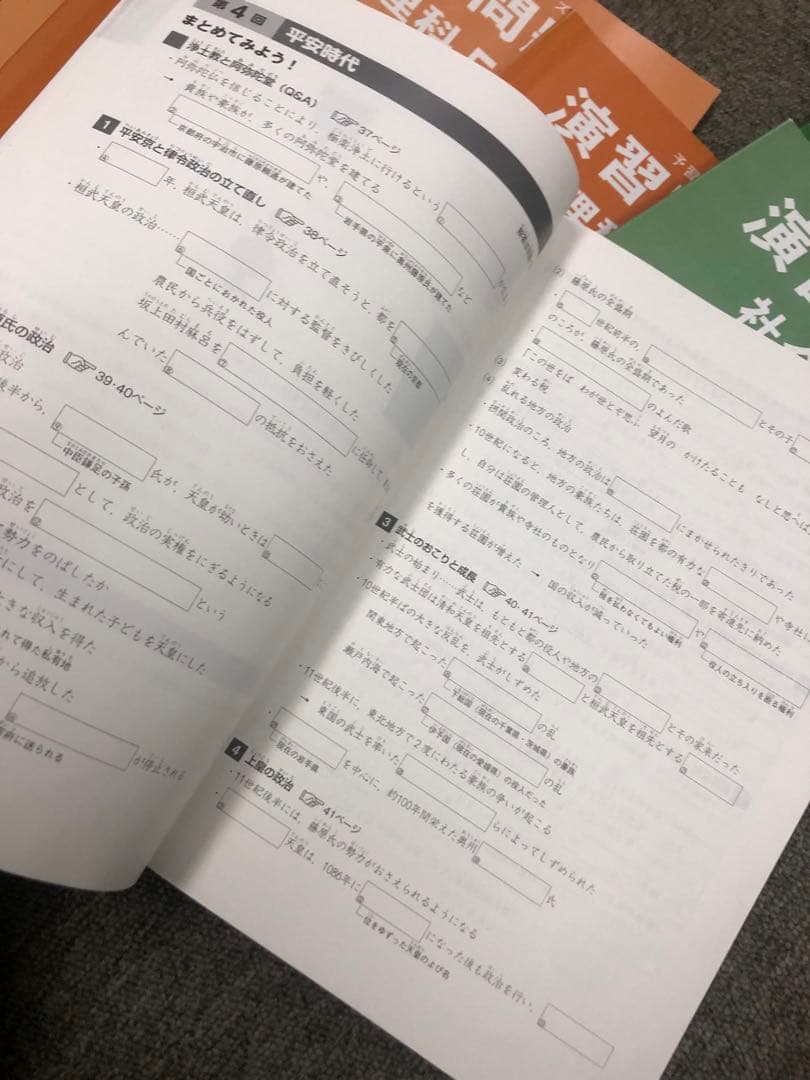 第4回 平安時代
まとめてみよう!
浄土教と阿弥陀堂(Q&A) 37ページ
・阿弥陀仏を信じることにより、極楽浄土に行けるという
→ 貴族や豪族が、多くの阿弥陀堂を建てる
や、
など
京都府の宇治市に藤原頼通が建てた
岩手県の平泉に奥州藤原氏が建てた
1 平安京と律令政治の立て直し 38ページ
年、桓武天皇は、律令政治を立て直そうと、都を
現在の京都
・桓武天皇の政治……
に対する監督をきびしくした
国ごとにおかれた役人
農民から兵役をはずして、負担を軽くした
坂上田村麻呂を
に任命して、
んでいた
の抵抗をおさえた
氏の政治 39・40ページ
政治
後半から、
氏が、天皇が幼いときは
中臣鎌足の子孫
として、政治の実権をにぎるようになる
政治を
という
勢力をのばしたか
にして、生まれた子どもを天皇にした
きな収入を得た
れて得た私有地
から追放した
が停止される
に送られる
(2) 藤原氏の全盛期
世紀前半の、
とその子
のころが、藤原氏の全盛期であった
のよんだ歌
「この世をば わが世とぞ思ふ 望月の かけたることも なしと思へば
(3) 変わる税
(4) 乱れる地方の政治
・摂関政治のころ、地方の政治は
にまかせられたきりであった
・10世紀になると、地方の豪族たちは、荘園を都の有力な
や寺社
し、自分は荘園の管理人として、農民から取り立てた税の一部を寄進先に納めた
・多くの荘園が貴族や寺社のものとなり → 国の収入が減っていった
や
税を払わなくてもよい権利
役人の立ち入りを断る権利
を獲得する荘園が増えた
3 武士のおこりと成長 40・41ページ
・武士の始まり……武士は、もともと都の役人や地方の
とその家来だった
・有力な武士団は清和天皇を祖先とする
と桓武天皇を祖先とする
・10世紀半ばの大きな反乱を、武士がしずめた
関東地方で起こった
の乱
下総国(現在の千葉県・茨城県)の豪族
瀬戸内海で起こった
の乱
伊予国(現在の愛媛県)の役人だった
・11世紀後半に、東北地方で2度にわたる豪族の争いが起こる
→ 東国の武士を率いた
らによってしずめられた
を中心に、約100年間栄えた奥州
氏
現在の岩手県
4 上皇の政治 41ページ
・11世紀後半には、藤原氏の勢力がおさえられるようになる
天皇は、1086年に
になった後も政治を行い、
位をゆずった天皇のよび名
問!
理科
演習
理科
演習
社会